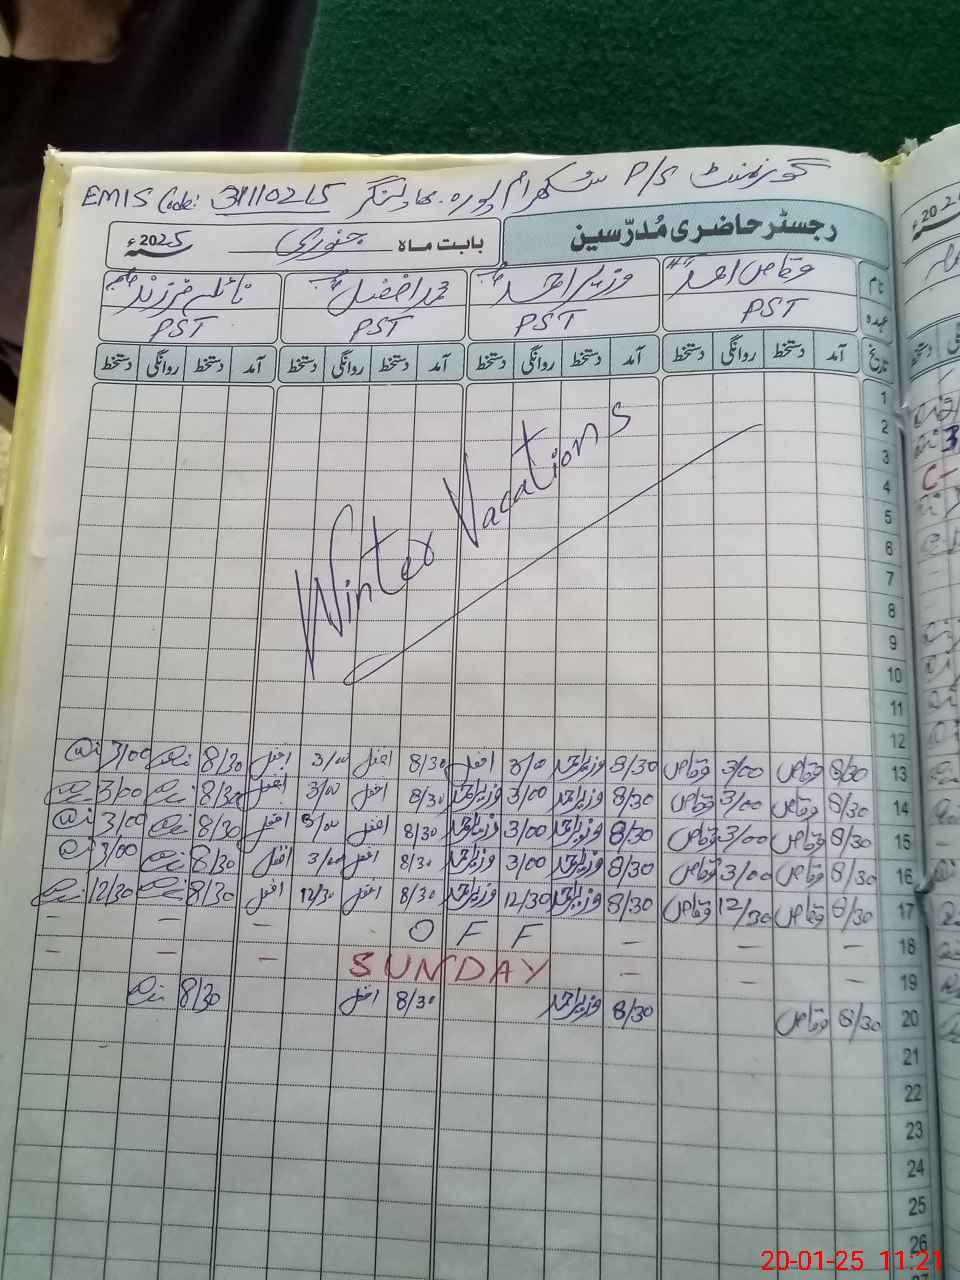 گورنمنٹ P/S شکرام پورہ بہاولنگر EMIS Code: 31110215
رجسٹر حاضری مُدرّسین
بابت ماہ جنوری 2025ء
نام وقاص احمد وزیر احمد محمد افضل
عہدہ PST PST PST PST
تاریخ آمد دستخط روانگی دستخط آمد دستخط روانگی دستخط آمد دستخط روانگی دستخط آمد دستخط روانگی دستخط
1
2
3
4
5
6
7
8
9
10
11
12
Winter Vacations
13 8/30 وقاص 3/00 وقاص 8/30 وزیر احمد 3/00 افضل 8/30 افضل 3/00 افضل 8/30 3/00
14 8/30 وقاص 3/00 وقاص 8/30 وزیر احمد 3/00 وزیر احمد 8/30 افضل 3/00 افضل 8/30 3/00
15 8/30 وقاص 3/00 وقاص 8/30 وزیر احمد 3/00 وزیر احمد 8/30 افضل 3/00 افضل 8/30 3/00
16 8/30 وقاص 3/00 وقاص 8/30 وزیر احمد 3/00 وزیر احمد 8/30 افضل 3/00 افضل 8/30 3/00
17 8/30 وقاص 12/30 وقاص 8/30 وزیر احمد 12/30 وزیر احمد 8/30 افضل 12/30 افضل 8/30 12/30
18 — — — OFF — — —
19 — — — SUNDAY — — —
20 8/30 وقاص 8/30 وزیر احمد 8/30 افضل 8/30
21
22
23
24
25
26
20-01-25 11:21